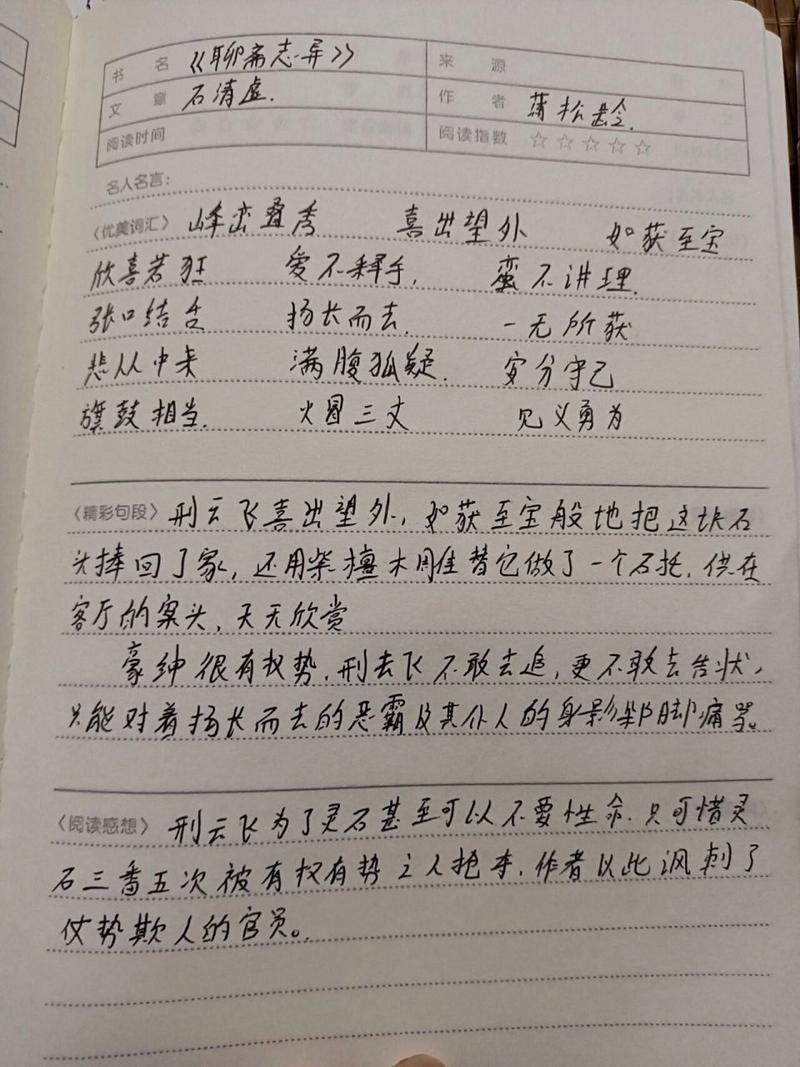 书 名 《聊斋志异》 来 源
文 章 石清虚. 作 者 蒲松龄.
阅读时间 阅读指数 ☆☆☆☆☆
名人名言：
〈优美词汇〉 峰峦叠秀 喜出望外 如获至宝
欣喜若狂 爱不释手, 蛮不讲理.
张口结舌 扬长而去. 一无所获
悲从中来 满腹狐疑. 安分守己
旗鼓相当. 火冒三丈 见义勇为
〈精彩句段〉 刑云飞喜出望外, 如获至宝般地把这块石
头捧回了家, 还用紫檀木雕替它做了一个石托, 供在
客厅的案头, 天天欣赏
豪绅很有权势, 刑云飞不敢去追, 更不敢去告状,
只能对着扬长而去的恶霸及其仆人的身影跺脚痛哭。
〈阅读感想〉 刑云飞为了灵石甚至可以不要性命. 只可惜灵
石三番五次被有权有势之人抢夺. 作者以此讽刺了
仗势欺人的官员。